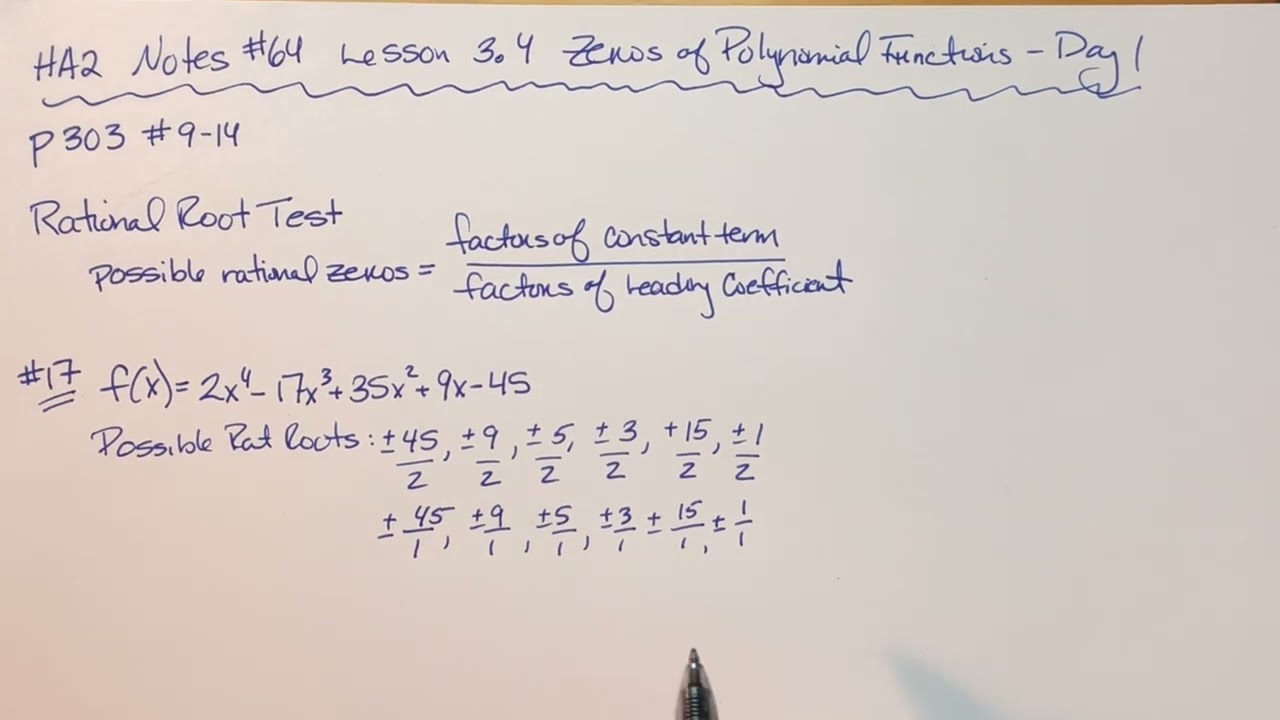 HA2 Notes #64 Lesson 3.4 Zeros of Polynomial Functions - Day 1
P303 #9-14
Rational Root Test
possible rational zeros = factors of constant term / factors of Leading Coefficient
#17 f(x) = 2x⁴ - 17x³ + 35x² + 9x - 45
Possible Rat Roots: ± 45/2, ± 9/2, ± 5/2, ± 3/2, + 15/2, ± 1/2
± 45/1, ± 9/1, ± 5/1, ± 3/1 ± 15/1, ± 1/1